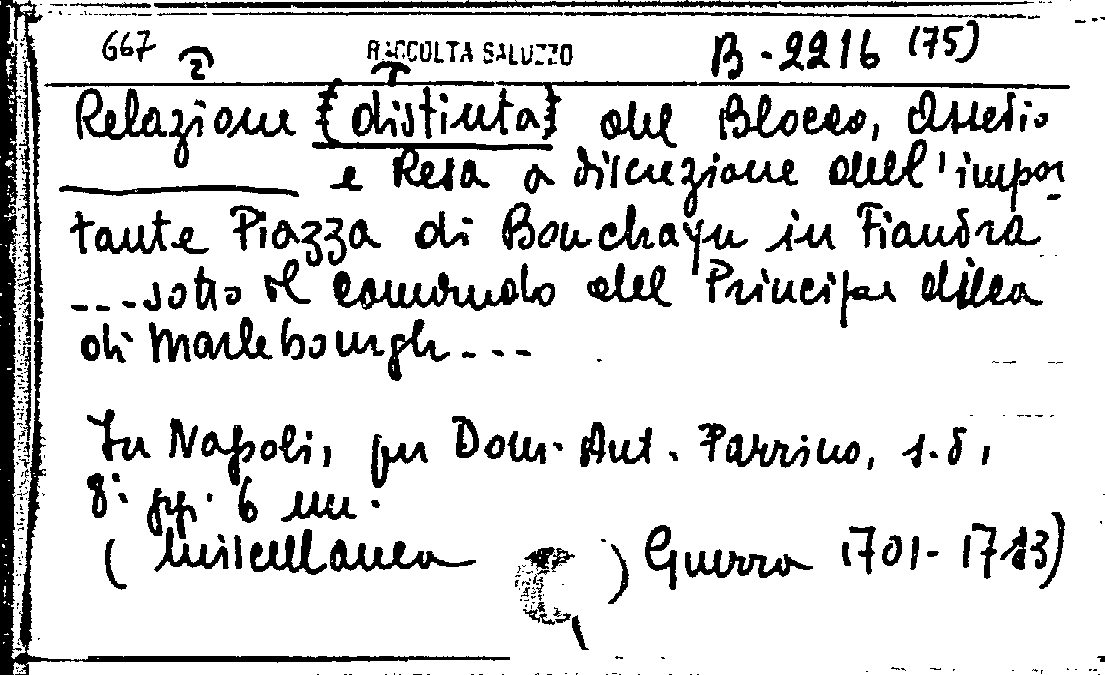 667 2 RACCOLTA SALUZZO B-2216 (75)
Relazione [distinta] del Blocco, Assedio
e Resa a discrezione dell'impor-
tante Piazza di Bonchayn in Fiandra
...sotto il comando del Principe duca
di Marlebourgh...
In Napoli, per Dom. Ant. Parrino, s.d,
8° pp. 6 nn.
(Miscellanea ) Guerra 1701-1713)